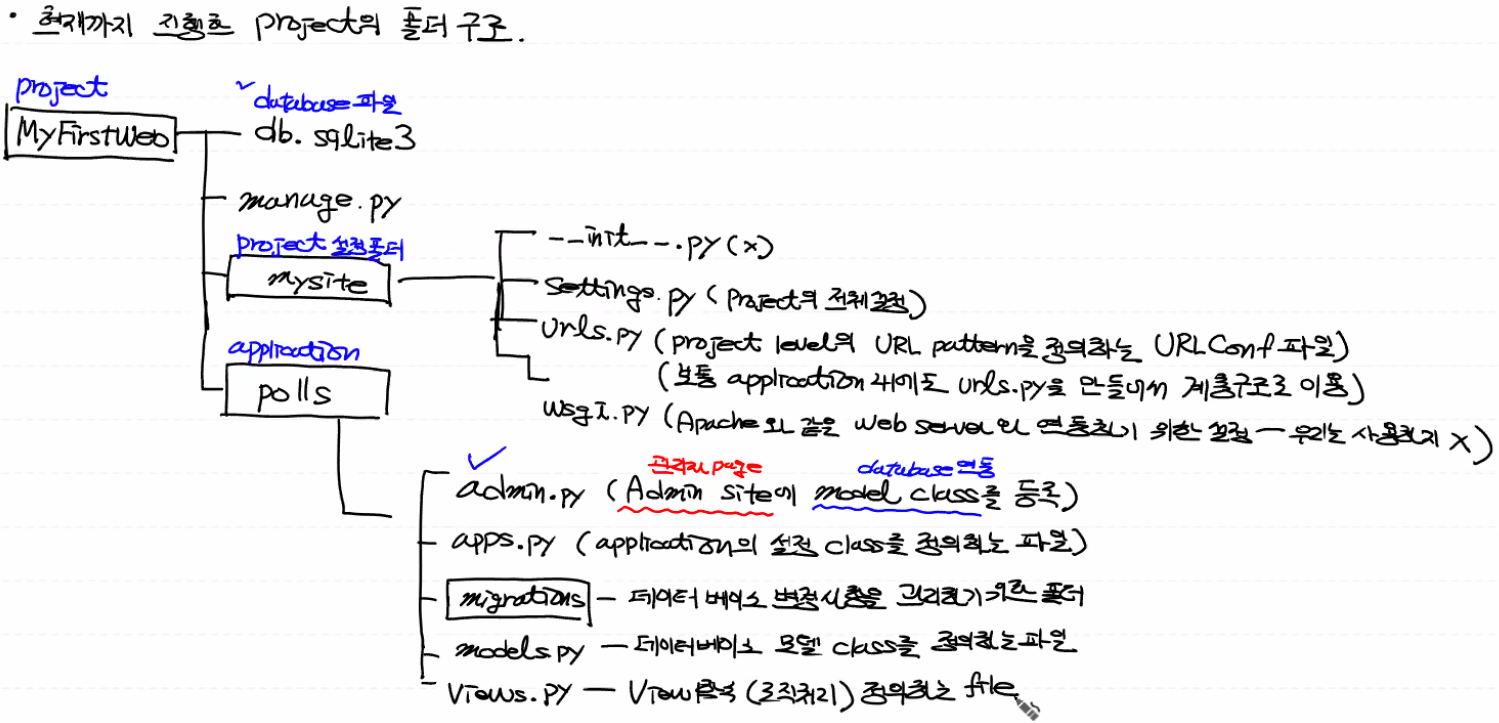 • 현재까지 진행한 project의 폴더 구조.
project
MyFirstWeb
✓ database 파일
db.sqlite3
manage.py
project 설정폴더
mysite
__init__.py (x)
settings.py (project의 전체설정)
urls.py (project level의 URL pattern을 정의하는 URLConf 파일)
(보통 application 내에도 urls.py을 만들어서 계층구조로 이용)
wsgi.py (Apache와 같은 web server와 연동하기 위한 설정 — 우리는 사용하지 x)
application
polls
✓
관리자 page
database 연동
admin.py (Admin site에 model class를 등록)
apps.py (application의 설정 class를 정의하는 파일)
migrations — 데이터베이스 변경사항을 관리하기 위한 폴더
models.py — 데이터베이스 모델 class를 정의하는 파일
views.py — View (로직처리) 정의하는 file